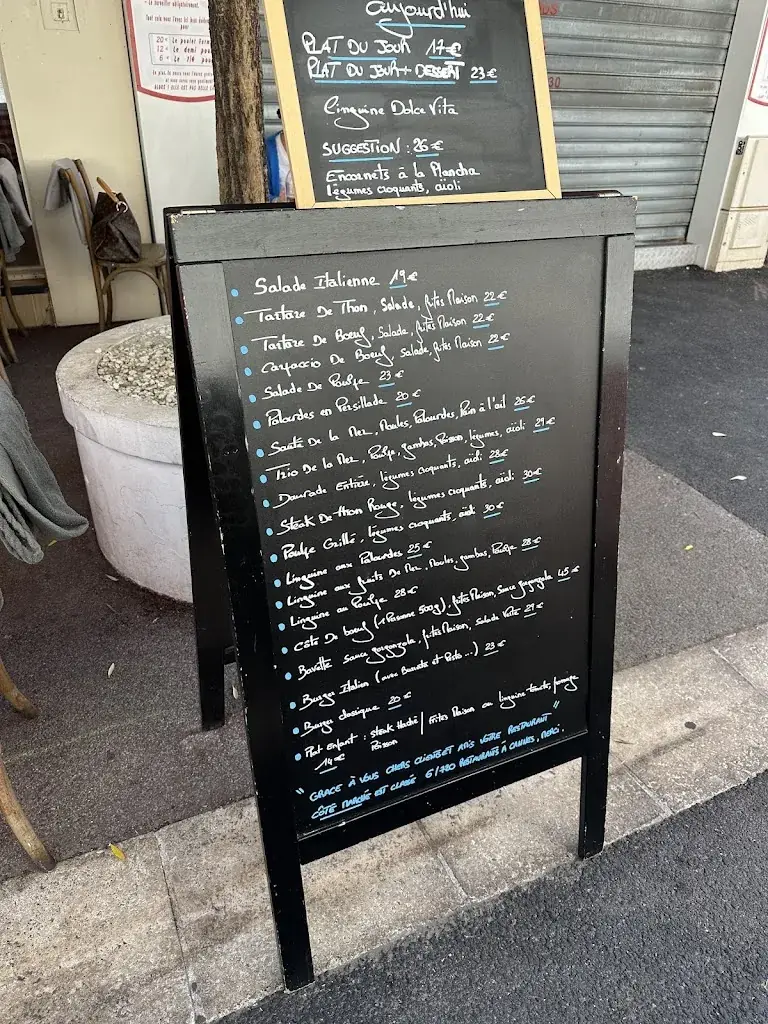 aujourd'hui
PLAT DU JOUR 17€
PLAT DU JOUR + DESSERT 23€
Linguine Dolce Vita
SUGGESTION : 26€
Encornets à la Plancha
légumes croquants, aïoli
Salade Italienne 19€
Tartare De Thon, Salade, frites Maison 22€
Tartare De Boeuf, Salade, frites Maison 22€
Carpaccio De Boeuf, Salade, frites Maison 22€
Salade De Poulpe 23€
Palourdes en Persillade 20€
Sauté De la Mer, Moules, Palourdes, Pain à l'ail 26€
Trio De la Mer, Poulpe, gambas, Poisson, légumes, aïoli 29€
Daurade Entière, légumes croquants, aïoli 28€
Steak De thon Rouge, légumes croquants, aïoli 30€
Poulpe Grillé, légumes croquants, aïoli 30€
Linguine aux Palourdes 25€
Linguine aux fruits De Mer, Moules, gambas, Poulpe 28€
Linguine au Poulpe 28€
Côte De boeuf (1 Personne 500g), frites Maison, Sauce gorgonzola 45€
Bavette Sauce gorgonzola, frites Maison, Salade Verte 29€
Burger Italien (avec Burrata et Pesto...) 23€
Burger classique 20€
Plat enfant : Steak Haché / frites Maison ou linguine tomate, fromage
Poisson
14€
"GRACE À VOUS CHERS CLIENTS ET AMIS VOTRE RESTAURANT"
CÔTÉ MARCHÉ EST CLASSÉ 6/780 RESTAURANTS À CANNES, MERCI.